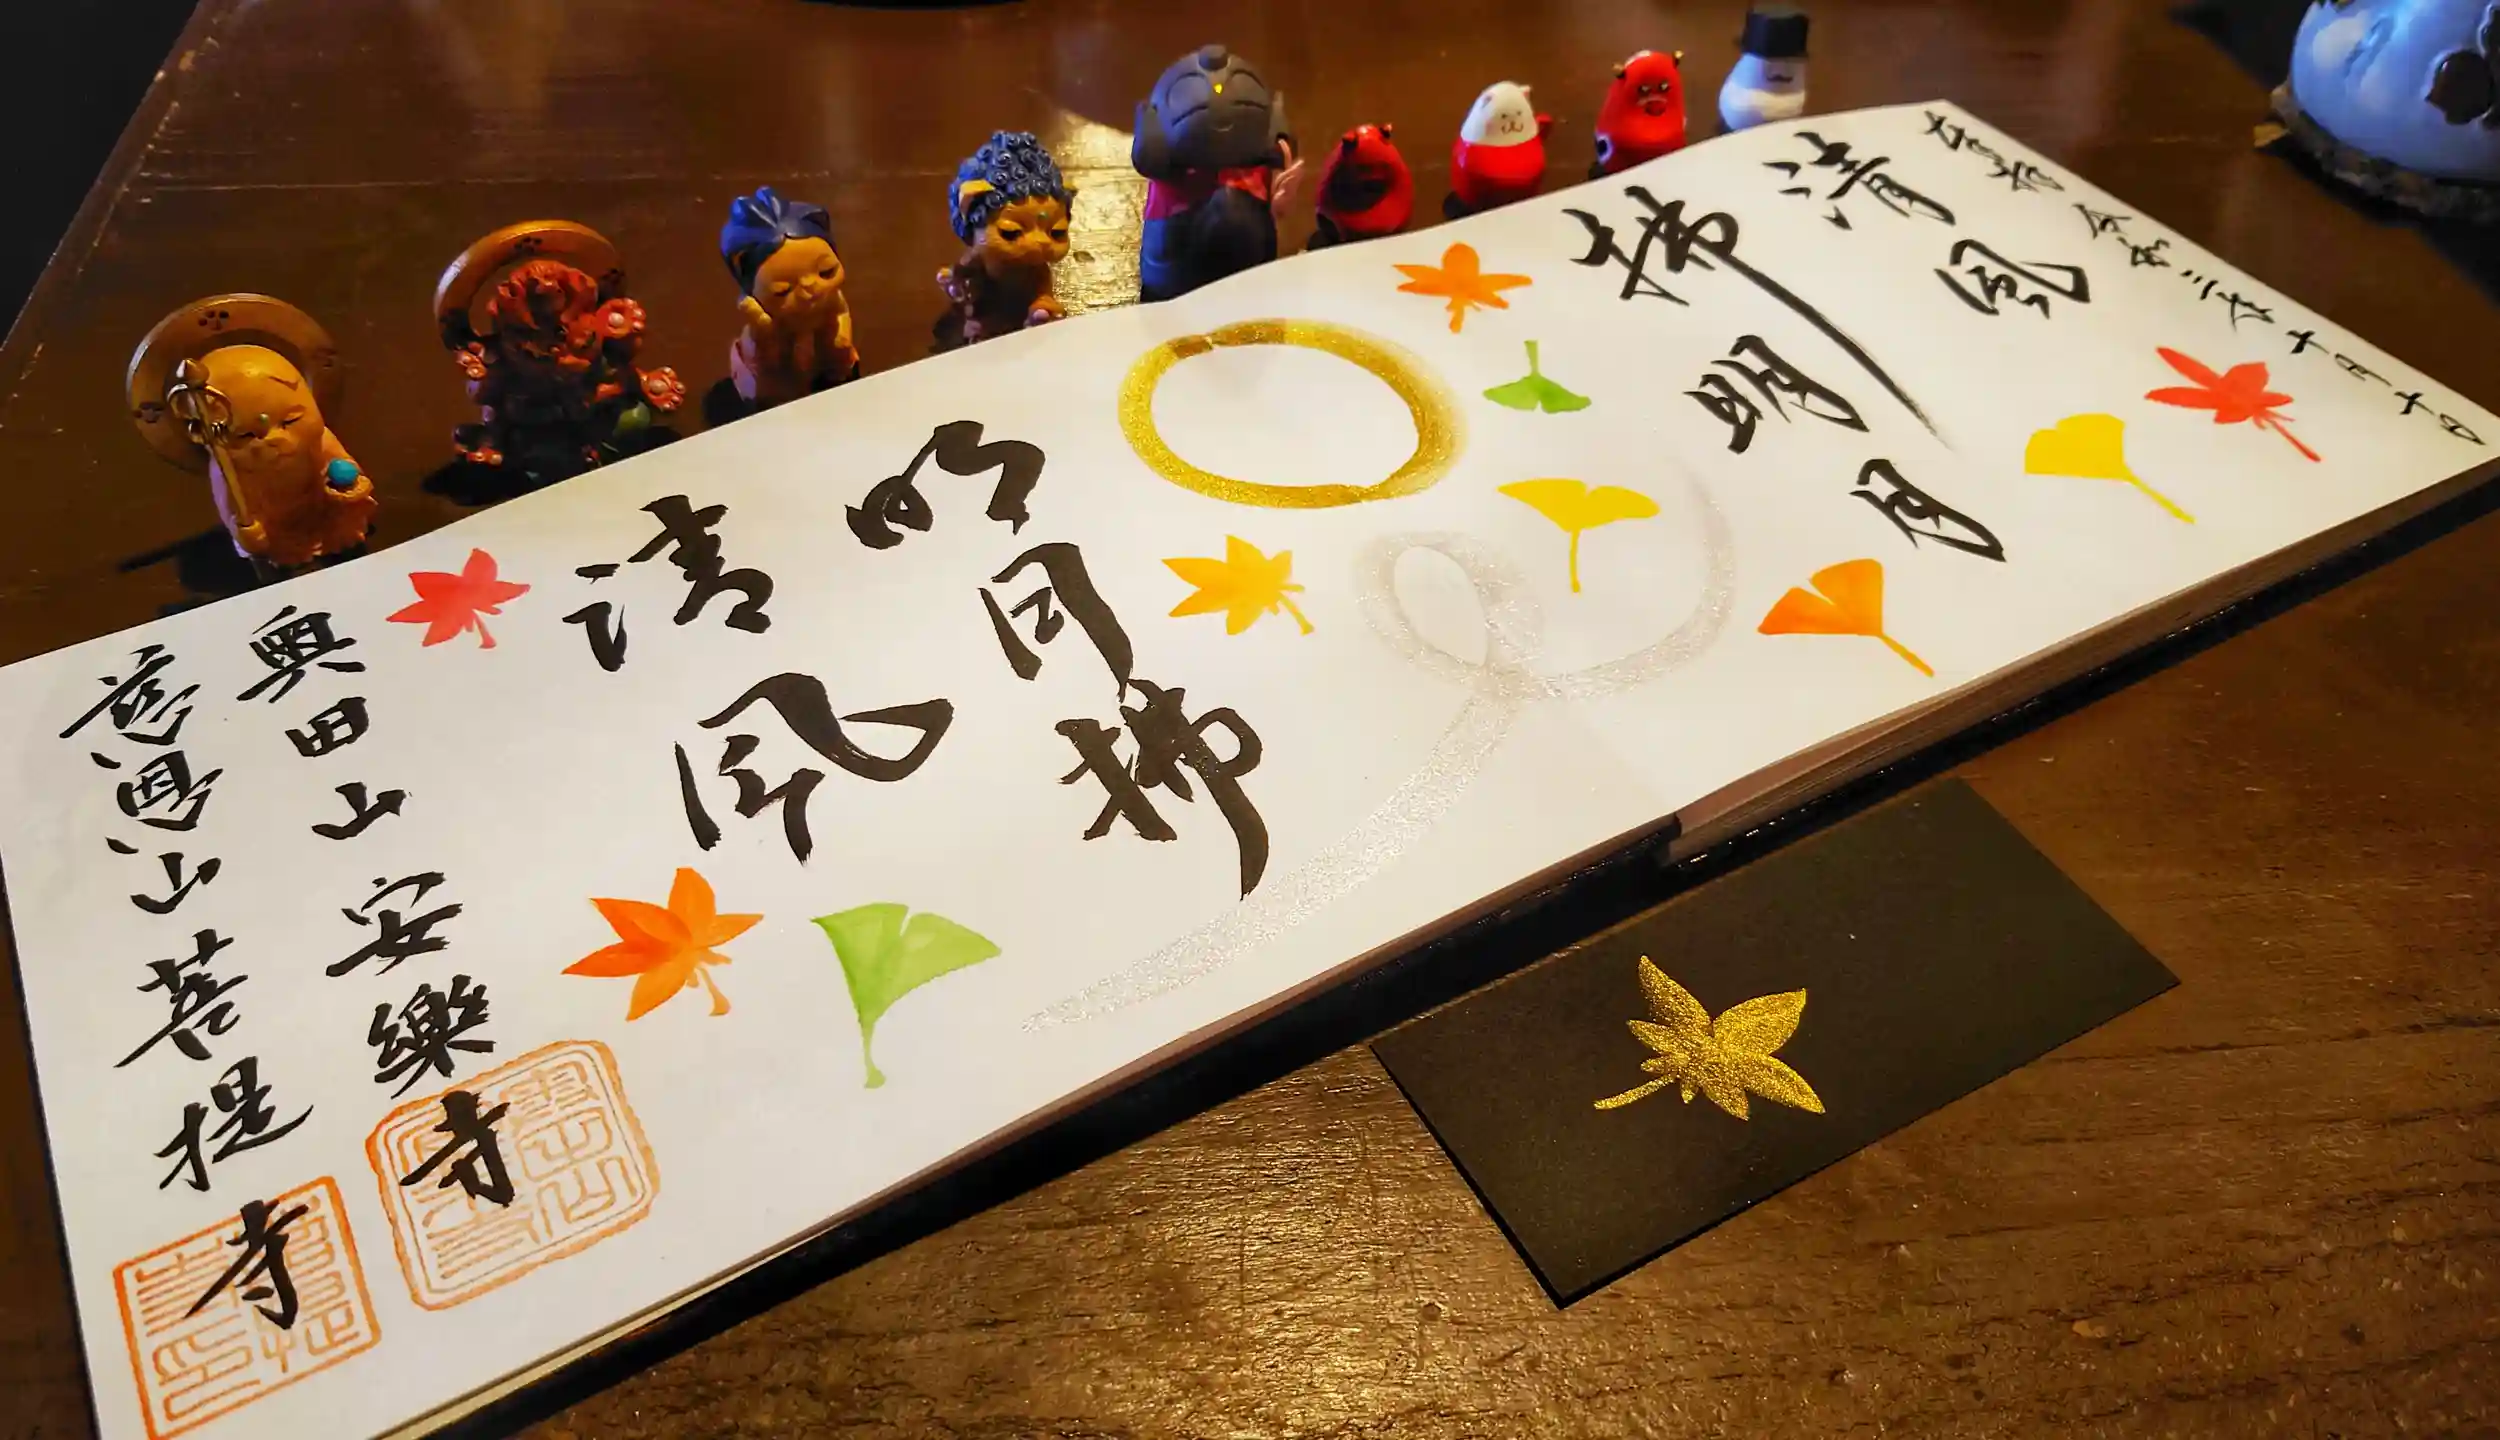 奉拝 令和三年十月十日
清風
拂明月
明月拂
清風
奥田山 安樂寺
慈恩山 菩提寺